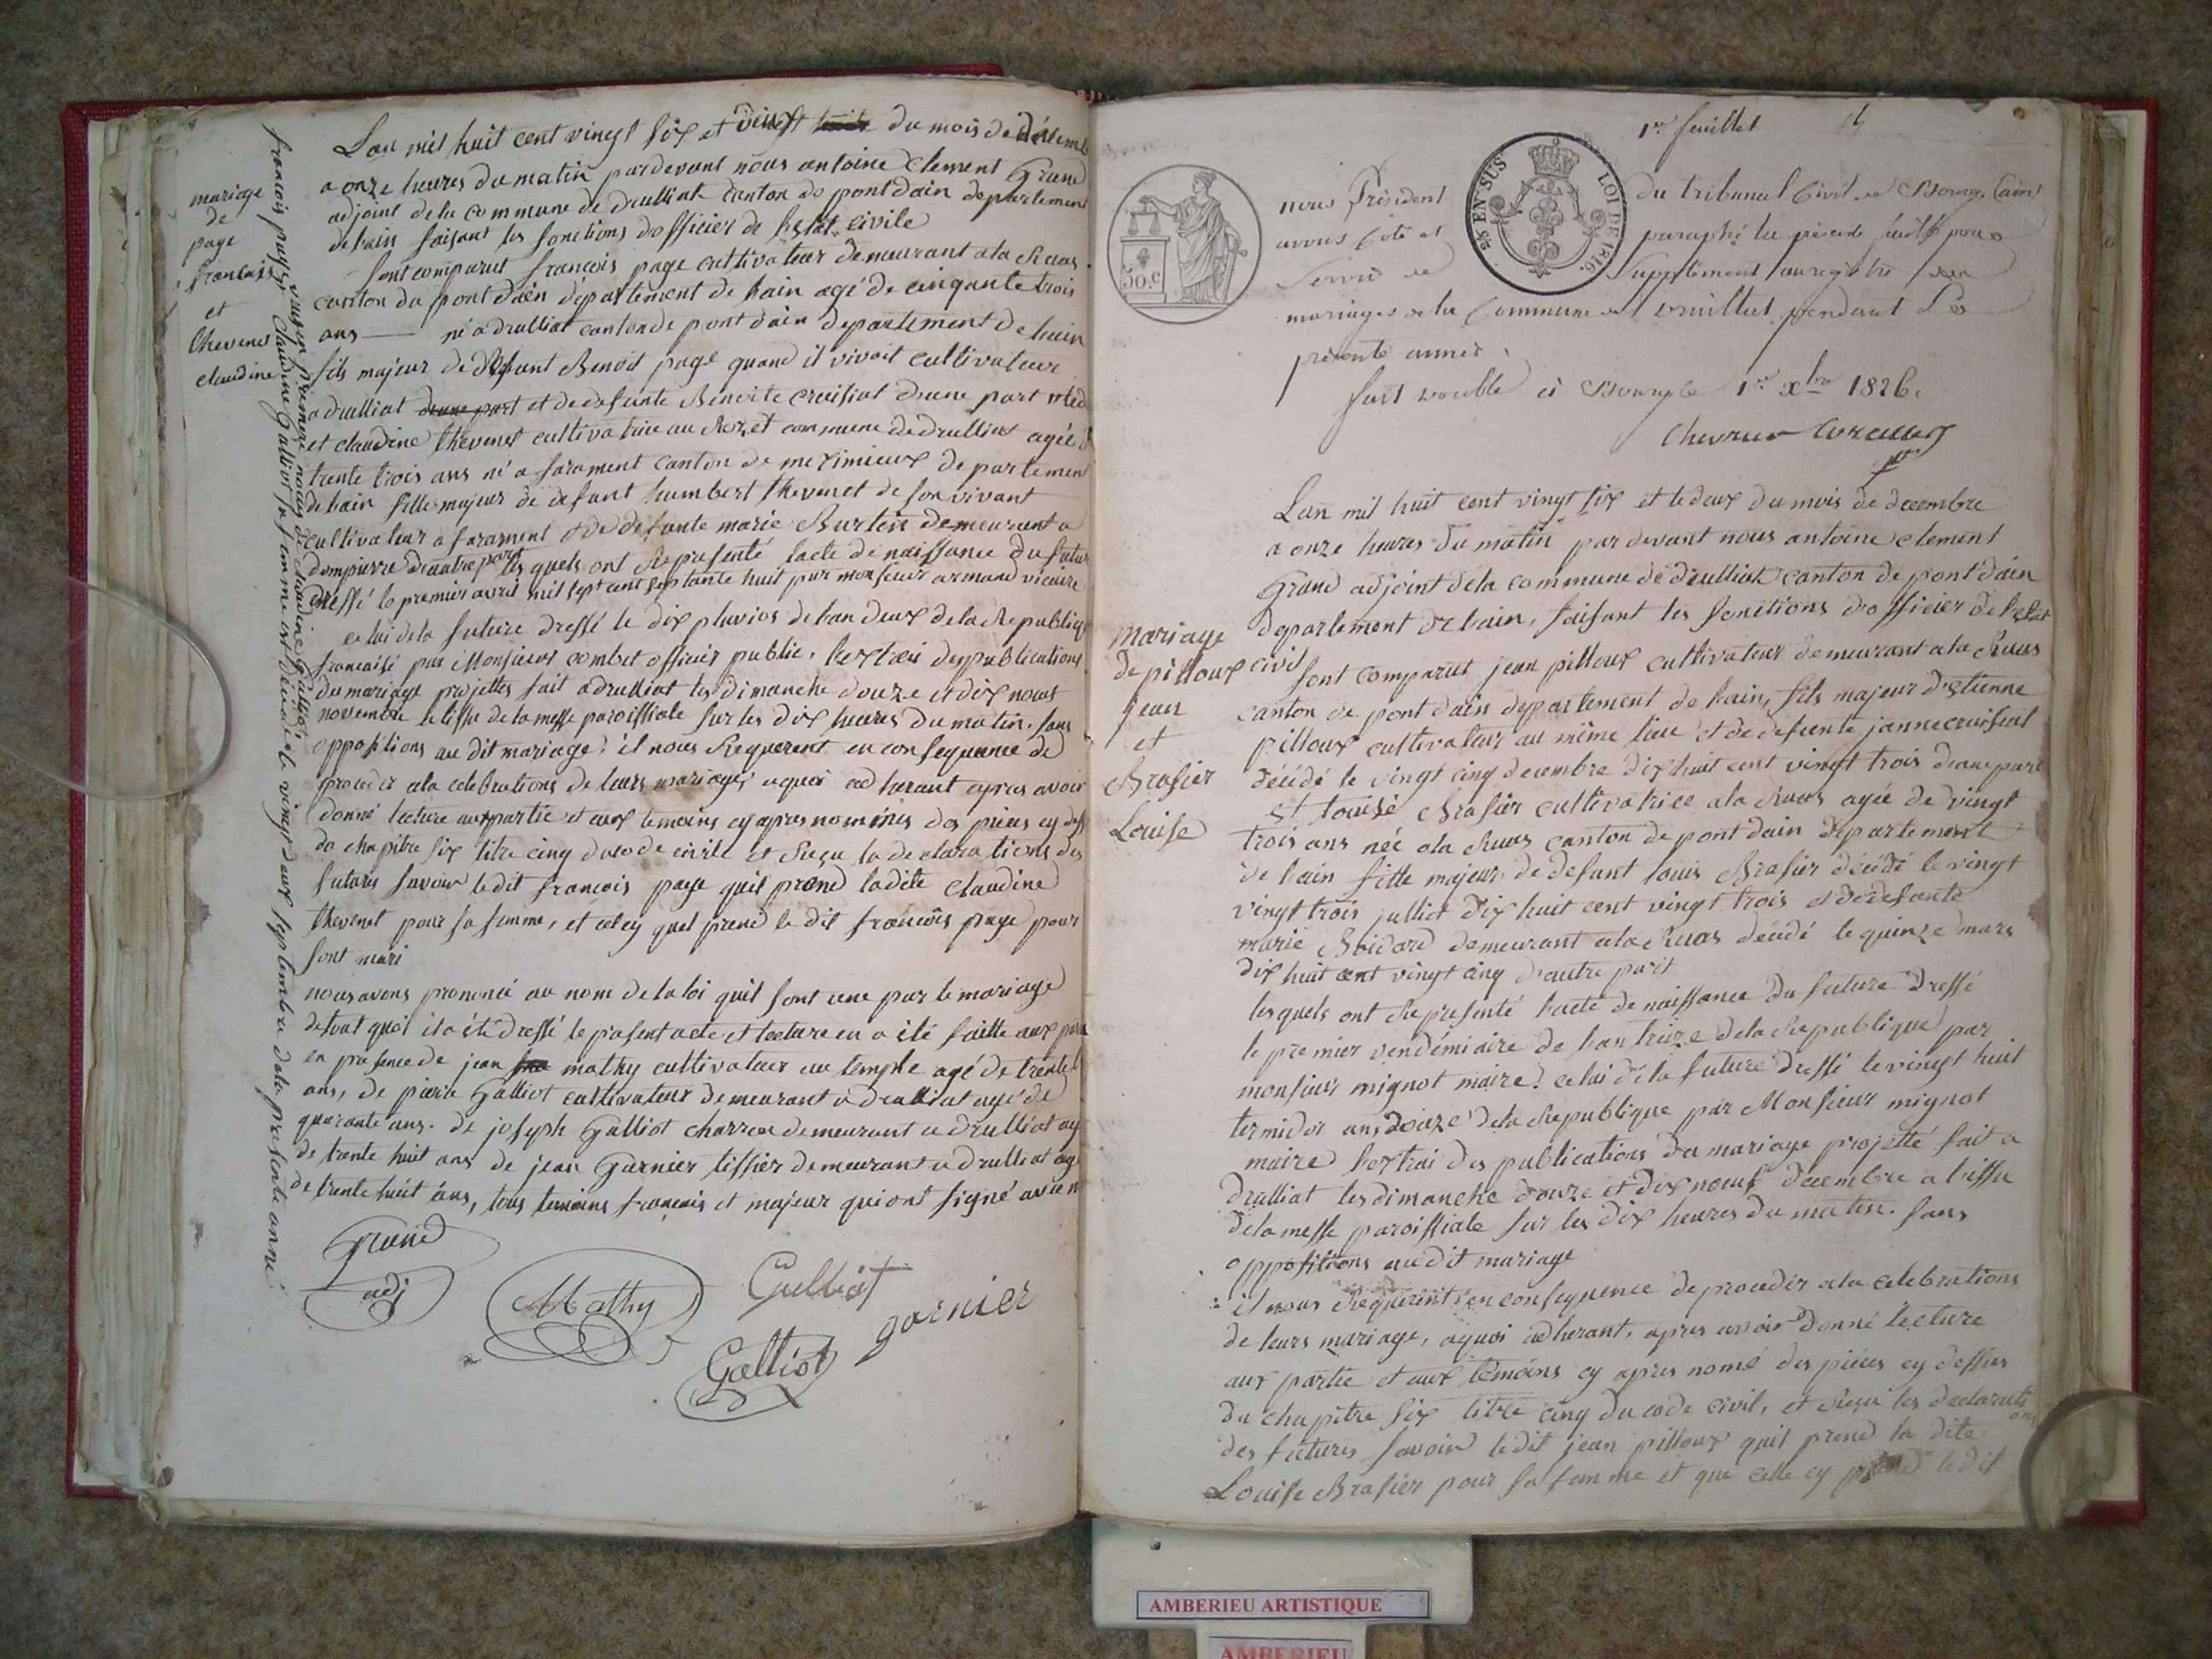 Lan mil huit cent vingt six et deux du mois de décemb
a onze heures du matin pardevant nous antoine Clement Grand
adjoint dela commune de druilliat canton de pontdain departement
delain faisant les fonctions dofficier de lestat civile
Sont comparut francois page cultivateur demeurant ala Ruas
canton du pont dain departement de lain agé de cinqante trois
ans né a drulliat canton de pont dain departement de lain
fils majeur de defunt Benoit page quand il vivoit cultivateur
a drulliat deune part et dedefunte Benoite cruisiat deune part
et claudine thevenet cultivatrice au commune dedrulliat agée
trente trois ans né a farament canton de meximieux departemen
delain fille majeur de defunt humbert thevenet de son vivant
cultivateur a farament et de defunte marie Burtin demeurant a
dompierre deautre part les quels ont Representé lacte de naissance du futur
dressé le premier avril mil sept cent septante huit par monsieur armand vicaire
celui dela future dressé le dix pluvios delan deux dela Republiq
francaise par Monsieur combet officier public, lextrai des publications
du mariage projettes fait adrulliat les dimanche douze et dix nouf
novembre a lissu de la messe paroissiale sur les dix heures du matin. sans
oppositions au dit mariage, il nous Requerent en consequence de
proceder ala celebrations de leurs mariage, aquoi adherant apres avoir
donné lecture aux partie et aux temoins cy apres nommés des pieces cy dess
du chapitre six titre cinq du code civile et Reçu la declarations des
futurs savoir ledit francois page quil prend ladite claudine
thevenet pour sa femme, et celcy quel prend le dit francois page pour
sont mari
nous avons prononcé au nom dela loi quil sont une par le mariage
detout quoi il a été dressé le present acte et lecture en a été faitte aux par
en presence de jean mathy cultivateur au temple agé de trente
ans, de pierre Galliot cultivateur demeurant a drulliat agé de
quarante ans. de joseph Galliot charron demeurant a drulliat ag
de trente huit ans de jean Garnier tissier demeurant a drulliat agé
de trente huit ans, tous temoins francais et majeur qui ont signé avec n
Grand
adj
Mathy
Galliot
Galliot
garnier
mariage
de
page
francois
et
thevenet
claudine
francois page veuf en premiere noces de claudine Galliot
claudine Galliot sa femme est decedé le vingt deux septembre dela presente année
1er feuillet
nous Président du tribunal Civil de Bourg (ain)
avons coté et paraphé la présente feuille pour
Servir de Supplement au registre des
mariages de la Commune de druillat pendant la
présente année.
fait double à Bourg le 1er Xbre 1826.
50.c
25 EN SUS
LOI DE 1816.
Lan mil huit cent vingt six et le deux du mois de decembre
a onze heures du matin par devant nous antoine clement
Grand adjoint dela commune de drulliat canton de pont dain
departement de lain, faisant les fonctions dofficier de lestat
civil Sont comparut jean pilloux cultivateur demeurant ala Ruas
canton de pont dain departement de lain, fils majeur d'etienne
pilloux cultivateur au même lieu et de defunte janne cruisiat
décédé le vingt cinq decembre dix huit cent vingt trois deaune part
et louise Brasier cultivatrice ala Ruas agée de vingt
trois ans née ala Ruas canton de pont dain departement
de lain fille majeur de defunt louis Brasier décédé le vingt
vingt trois julliet dix huit cent vingt trois et dedefunte
marie Boidard demeurant ala Ruas décédé le quinze mars
dix huit cent vingt cinq d'autre part
lesquels ont Representé lacte de naissance du future dressé
le premier vendémiaire de lan treize dela Republique par
monsieur mignot maire. celui dela future dressé le vingt huit
termidor ans douze dela Republique par Monsieur mignot
maire lextrai des publications du mariage projetté fait a
drulliat les dimanche douze et dix nouf decembre a lissu
dela messe paroissiale sur les dix heures du matin. sans
oppositions au dit mariage
il nous Requerent en consequence de proceder ala celebrations
de leurs mariage, aquoi adherant, apres avoir donné lecture
aux partie et aux témoins cy apres nomé des piéces cy dessus
du chapitre six titre cinq du code civil, et Reçu les declarati
ons
des futures savoir ledit jean pilloux quil prend la dite
Louise Brasier pour sa femme et que celle cy prend le dit
mariage
de pilloux
jean
et
Brasier
Louise
AMBERIEU ARTISTIQUE
AMBERIEU